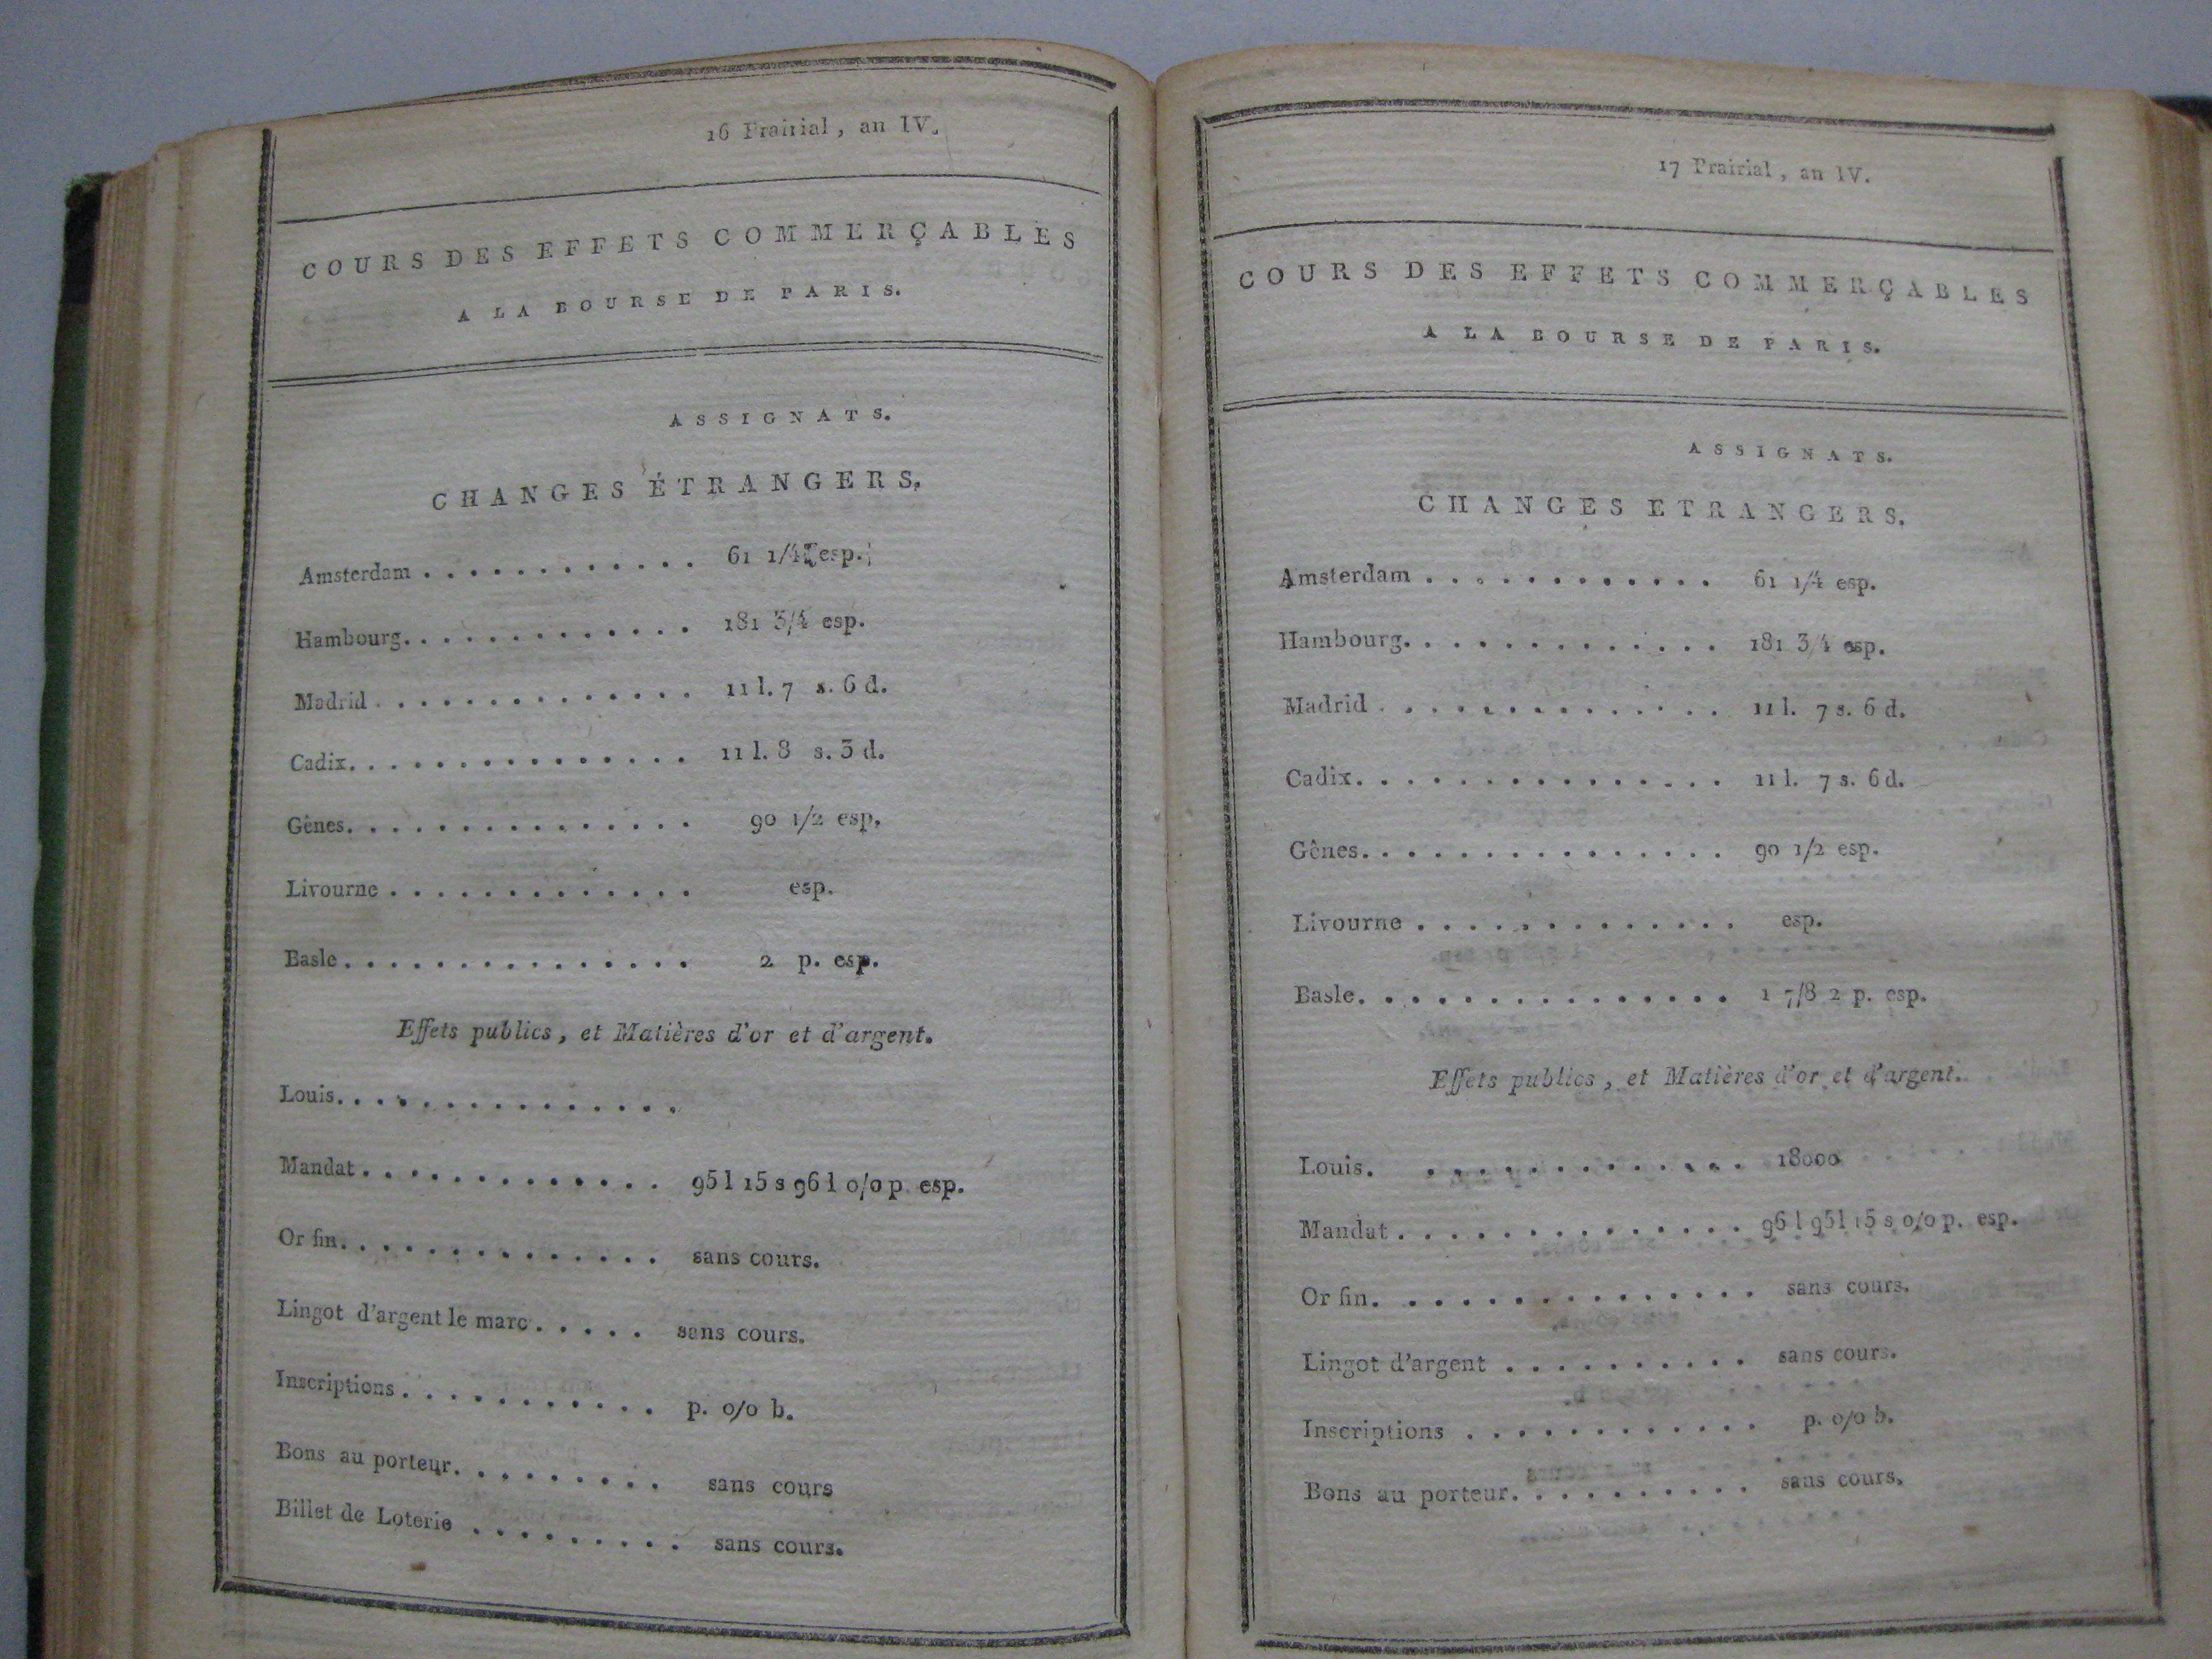 16 Prairial, an IV.
COURS DES EFFETS COMMERÇABLES
A LA BOURSE DE PARIS.
ASSIGNATS.
CHANGES ÉTRANGERS.
Amsterdam . . . . . . . . . . . . 61 1/4 esp.
Hambourg. . . . . . . . . . . . . 181 3/4 esp.
Madrid . . . . . . . . . . . . . . 11 l. 7 s. 6 d.
Cadix. . . . . . . . . . . . . . . 11 l. 8 s. 3 d.
Gênes. . . . . . . . . . . . . . . 90 1/2 esp.
Livourne . . . . . . . . . . . . . esp.
Basle . . . . . . . . . . . . . . . 2 p. esp.
Effets publics, et Matières d'or et d'argent.
Louis. . . . . . . . . . . . . . .
Mandat . . . . . . . . . . . . . 95 l 15 s 96 l o/o p. esp.
Or fin. . . . . . . . . . . . . . sans cours.
Lingot d'argent le marc . . . . . sans cours.
Inscriptions . . . . . . . . . . . p. o/o b.
Bons au porteur. . . . . . . . . sans cours
Billet de Loterie . . . . . . . . . sans cours.
17 Prairial, an IV.
COURS DES EFFETS COMMERÇABLES
A LA BOURSE DE PARIS.
ASSIGNATS.
CHANGES ETRANGERS.
Amsterdam . . . . . . . . . . . . 61 1/4 esp.
Hambourg. . . . . . . . . . . . . 181 3/4 esp.
Madrid . . . . . . . . . . . . . . 11 l. 7 s. 6 d.
Cadix. . . . . . . . . . . . . . . 11 l. 7 s. 6 d.
Gênes. . . . . . . . . . . . . . . 90 1/2 esp.
Livourne . . . . . . . . . . . . . esp.
Basle. . . . . . . . . . . . . . . 1 7/8 2 p. esp.
Effets publics, et Matières d'or et d'argent.
Louis. . . . . . . . . . . . . 18000
Mandat . . . . . . . . . . . . . . 96 l 95 l 15 s o/o p. esp.
Or fin. . . . . . . . . . . . . . . sans cours.
Lingot d'argent . . . . . . . . . . sans cours.
Inscriptions . . . . . . . . . . . . p. o/o b.
Bons au porteur. . . . . . . . . . sans cours.